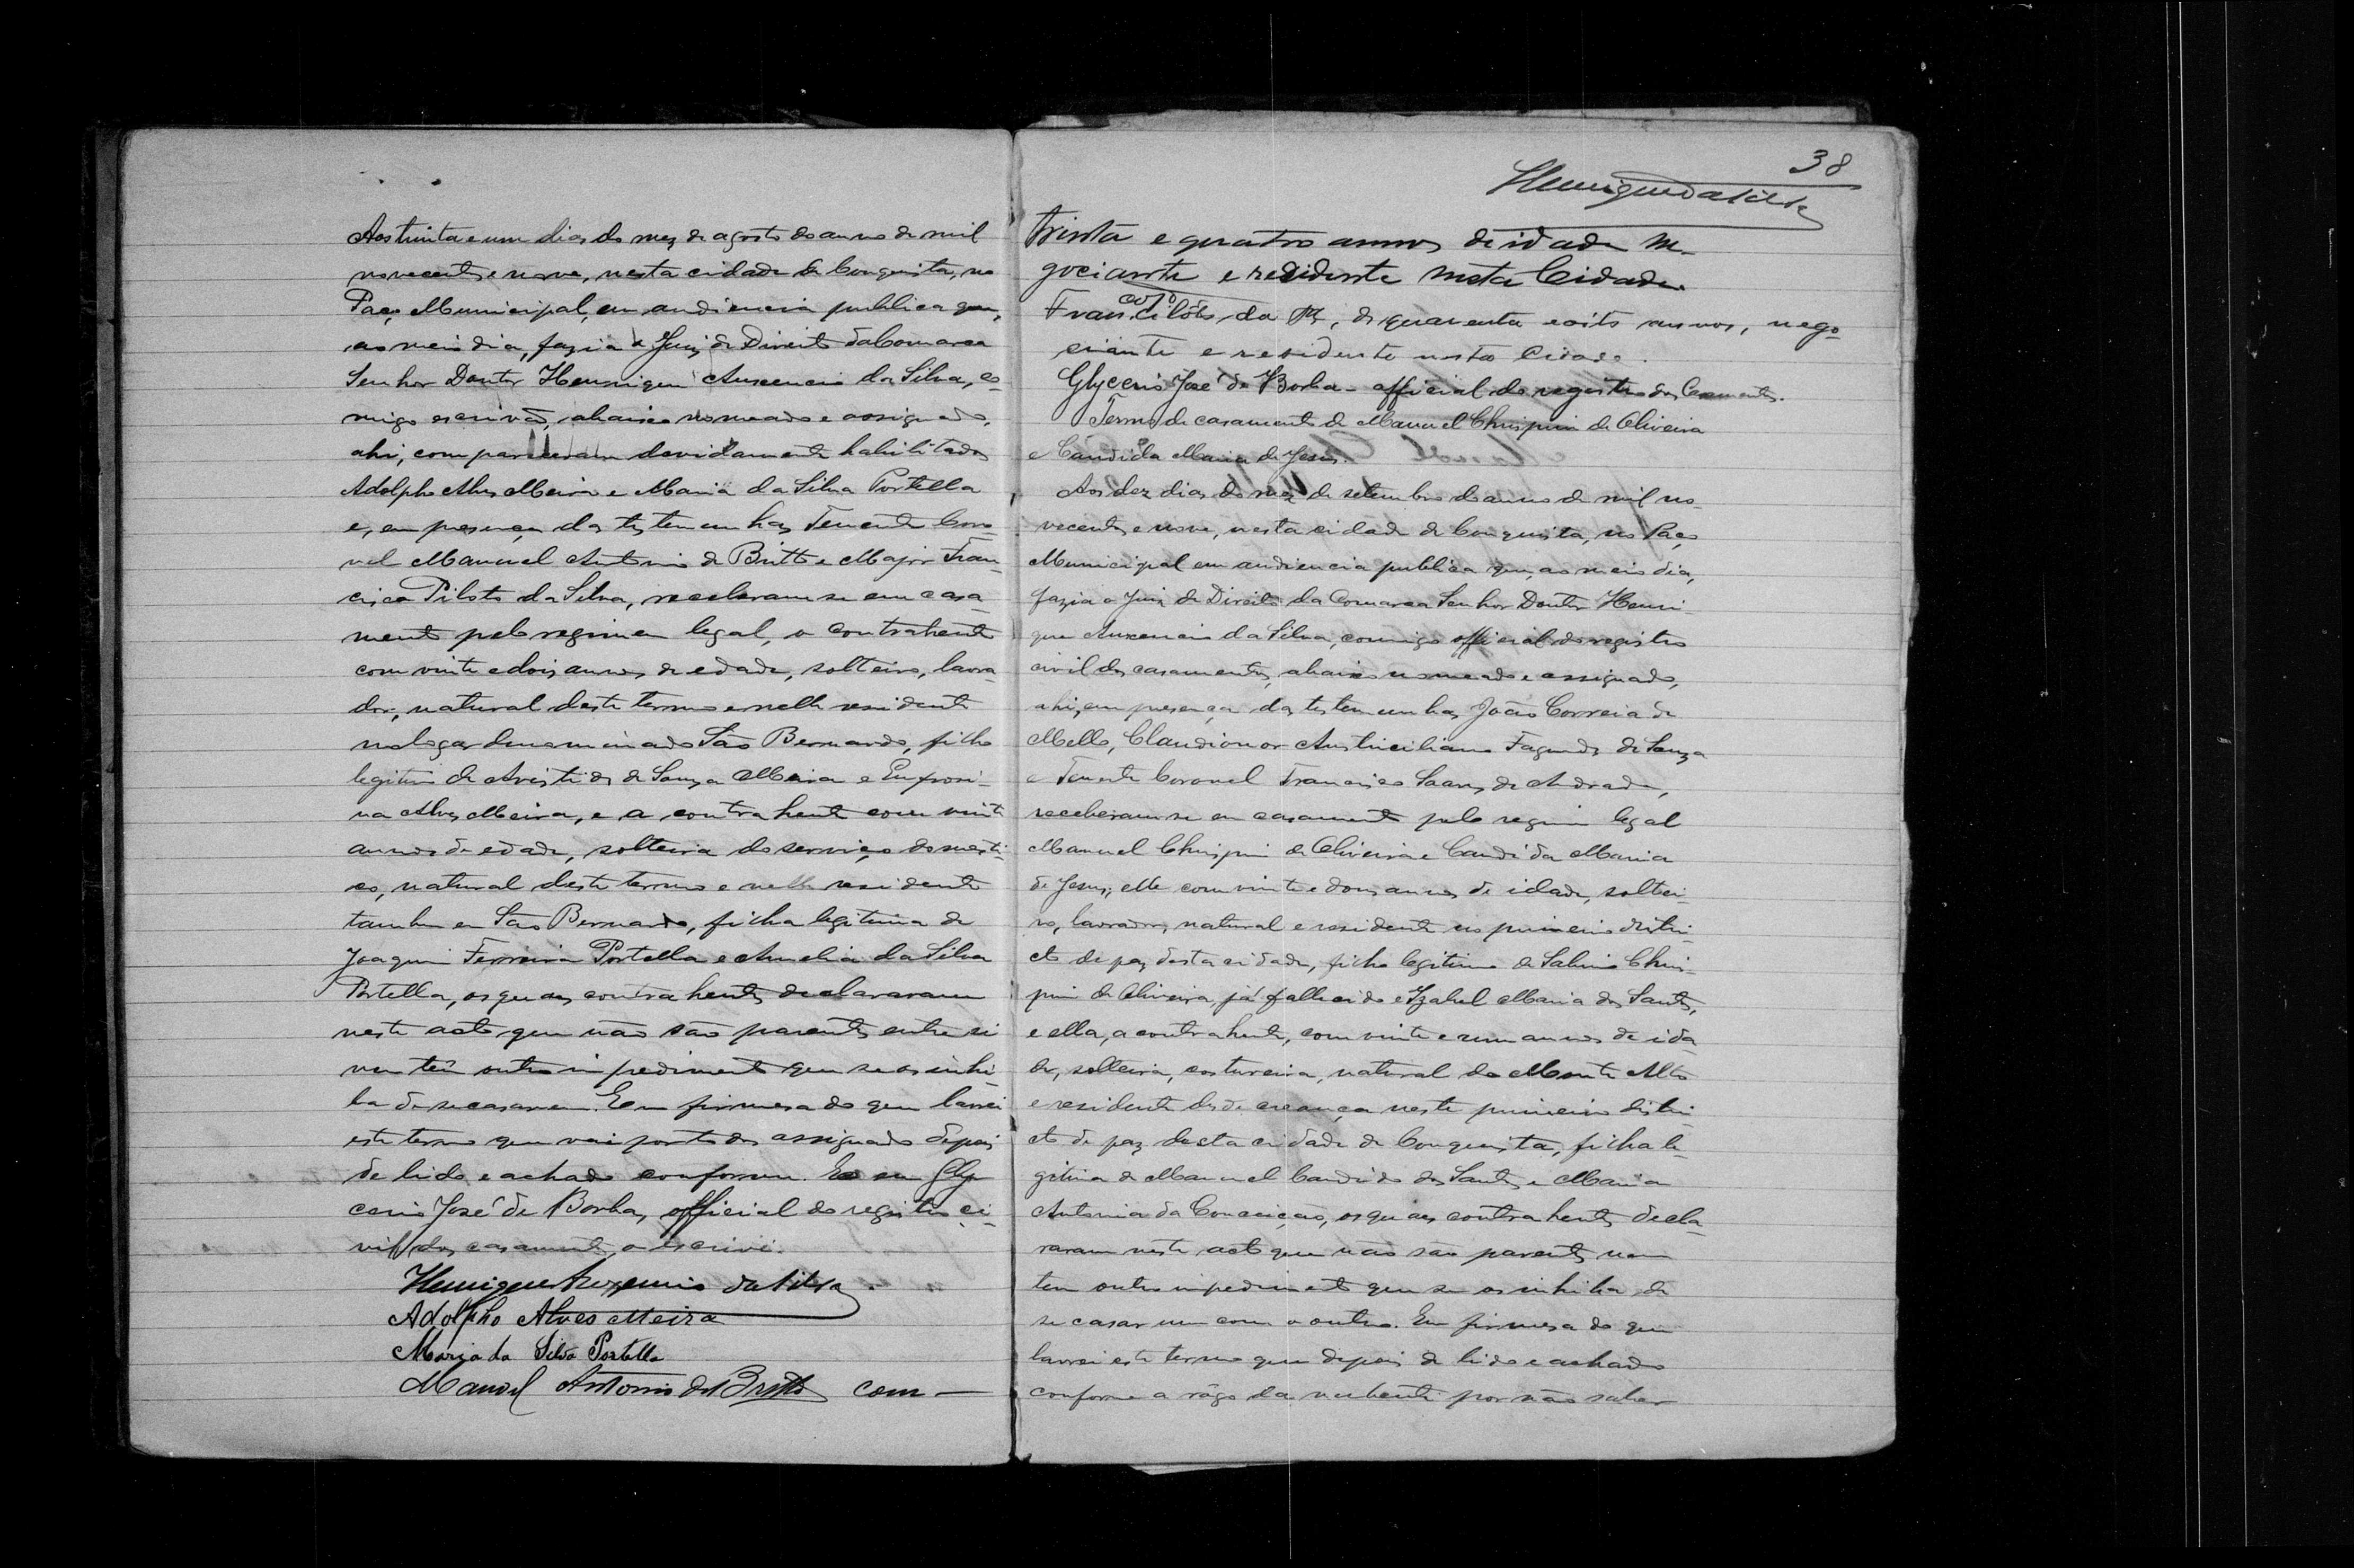 Aos trinta e um dias do mez de agosto do anno de mil
novecentos e nove, nesta cidade de Conquista, no
Paço Municipal, em audiencia publica que,
ao meio dia, fazia o Juiz de Direito da Comarca
Senhor Doutor Henrique Auxencio da Silva, co-
migo escrivão, abaixo nomeado e assignado,
ahi, compareceram devidamente habilitados
Adolpho Alves Meira e Maria da Silva Portella
e, em presença das testemunhas Tenente Coro
nel Manuel Antonio de Britto e Major Fran-
cisco Piloto da Silva, receberam-se em casa-
mento pelo regimen legal, o contrahente
com vinte e dois annos de edade, solteiro, lavra-
dor, natural deste termo e nelle residente
no logar denominado São Bernardo, filho
legitimo de Aristides de Souza Meira e Eufrosi-
na Alves Meira, e a contrahente com vinte
annos de edade, solteira do serviço domesti-
co, natural deste termo e nelle residente
tambem em São Bernardo, filha legitima de
Joaquim Ferreira Portella e Amelia da Silva
Portella, os quaes contrahentes declararam
neste acto que não são parentes entre si
nem têm outro impedimento que se os inhi-
ba de se casarem. E em firmesa do que lavrei
este termo que vai por todos assignado depois
de lido e achado conforme. Eu Gly
cerio José de Borba, official do registro ci-
vil dos casamentos, o escrivi.
Henrique Auxencio da Silva.
Adolpho Alves Meira
Maria da Silva Portella
Manoel Antonio de Britto com
38
Henrique da Silva
trinta e quatro annos de idade ne-
gociante e rezidente nesta Cidade.
Fran.co Pilôto da Sª, de quarenta e oito annos, nego-
ciante e residente nesta Cidade.
Glycerio José de Borba - official do registro dos Casamentos.
Termo de casamento de Manuel Chrispim de Oliveira
e Candida Maria de Jesus.
Aos dez dias do mez de setembro do anno de mil no-
vecentos e nove, nesta cidade de Conquista, no Paço
Municipal em audiencia publica que, ao meio dia,
fazia o Juiz de Direito da Comarca Senhor Doutor Henri
que Auxencio da Silva, comigo official do registro
civil dos casamentos, abaixo nomeado e assignado,
ahi, em presença das testemunhas João Correia de
Mello, Claudionor Austriciliano Fagundes de Souza
e Tenente Coronel Francisco Soares de Andrade,
receberam-se em casamento pelo regimen legal
Manuel Chrispim de Oliveira e Candida Maria
de Jesus; elle com vinte e dous annos de idade, soltei-
ro, lavrador, natural e residente no primeiro distri-
cto de paz desta cidade, filho legitimo de Sabino Chris-
pim de Oliveira, já fallecido e Izabel Maria dos Santos,
e ella, a contrahente, com vinte e um annos de ida-
de, solteira, costureira, natural de Monte Alto
e residente desde creança neste primeiro distri-
cto de paz desta cidade de Conquista, filha le-
gitima de Manuel Candido dos Santos e Maria
Antonia da Conceição, os quaes contrahentes decla-
raram neste acto que não são parentes nem
tem outro impedimento que se os inhiba de
se casar um com o outro. Em firmesa do que
lavrei este termo que depois de lido e achado
conforme a rôgo da nubente por não saber